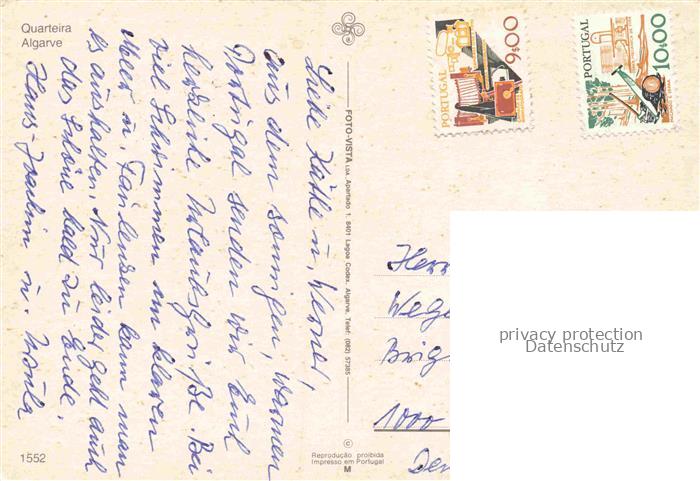 Quarteira
Algarve
Liebe Käthe u. Werner,
aus dem sonnigen, warmen
Portugal senden wir Euch
herzliche Urlaubsgrüße. Bei
viel Schwimmen im klaren
Meer u. Faulenzen kann man
es aushalten. Nur leider geht auch
das Schöne bald zu Ende.
Hans-Joachim u. Ursula
1552
FOTO-VISTA LDA. Apartado 1. 8401 Lagoa Codex. Algarve. Telef: (082) 57385
©
Reprodução proibida
Impresso em Portugal
M
PORTUGAL
9$00
PORTUGAL
10$00
Herr
1000
privacy protection
Datenschutz